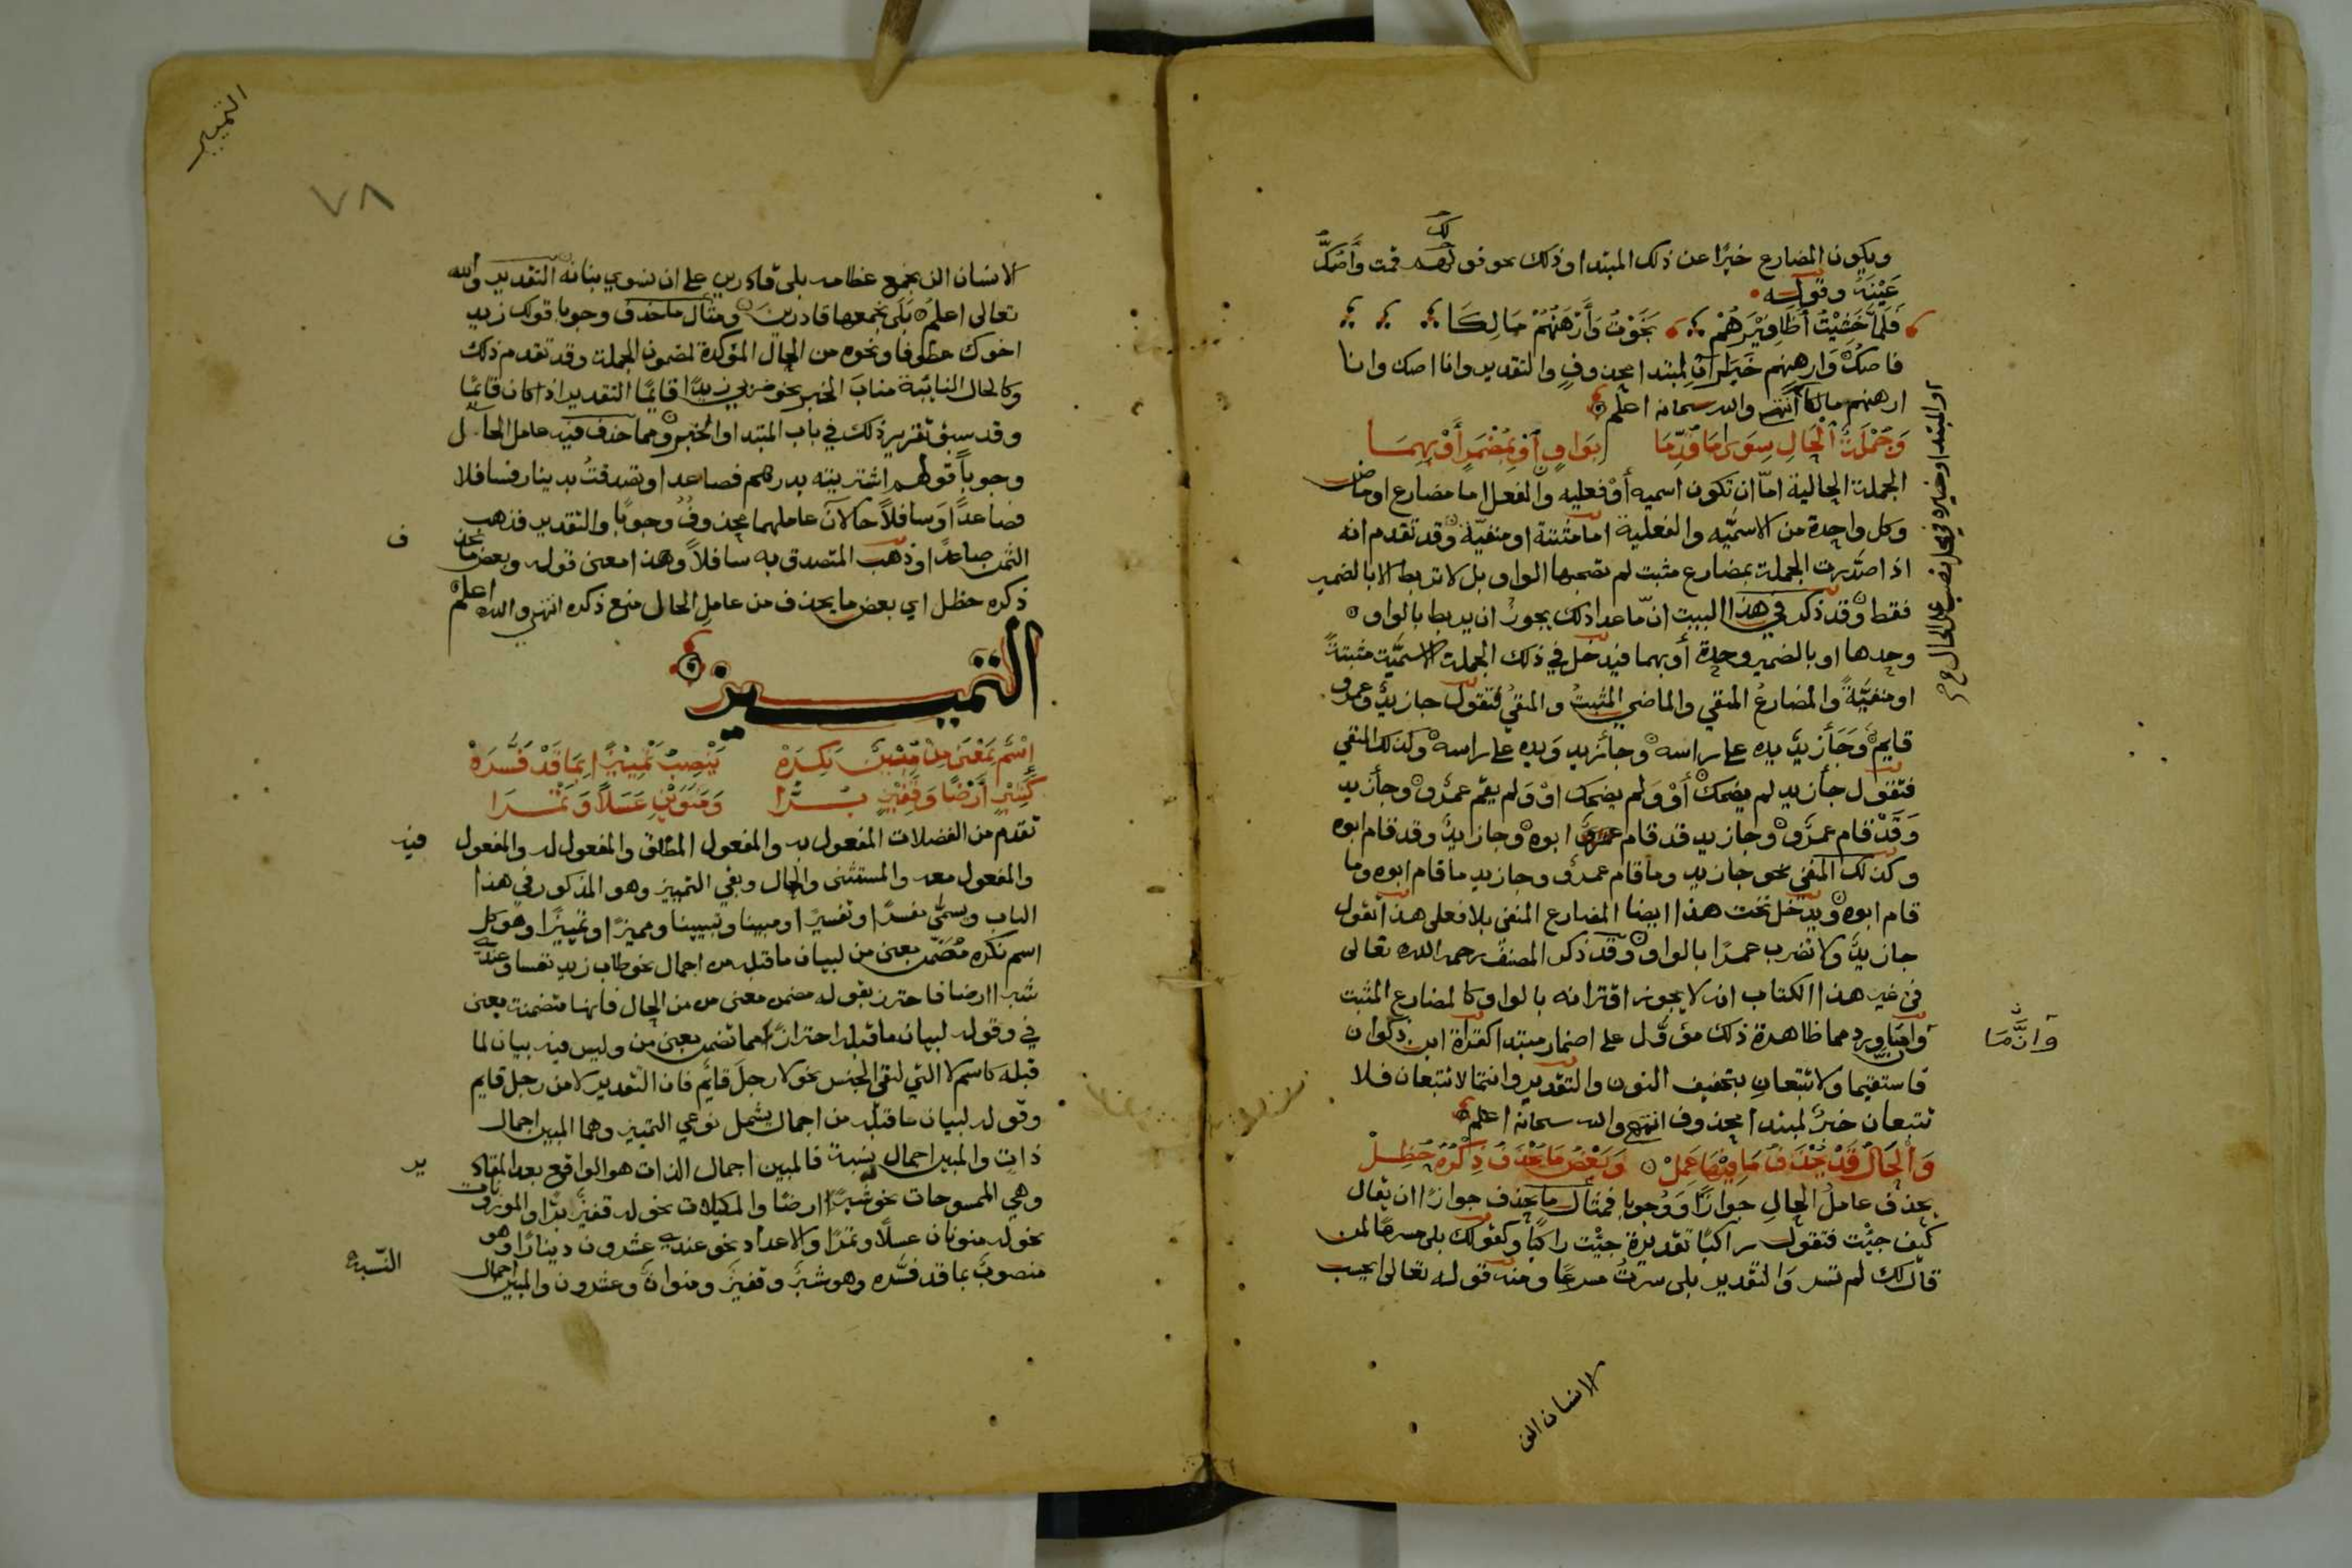 ويكون المضارع خبرًا عن ذلك المبتدا وذلك نحو قولهم قمت وأصكّ
عَيْنَهُ وقوله
فَلَمَّا خَشِيْتُ أَظَافِيْرَهُمْ نَجَوْتُ وَأَرْهَنُهُمْ مَالِكَا
فاصكّ وارهنهم خبران لمبتدا محذوف والتقدير وانا اصك وانا
ارهنهم مالكا انتهى والله سبحانه اعلم
وَجُمْلَةُ الْحَالِ سِوَى مَا قُدِّمَا بِوَاوٍ أَوْ بِمُضْمَرٍ أَوْ بِهِمَا
الجملة الحالية امّا ان تكون اسميه أوْ فعليه والفعل اما مضارع او ماض
وكل واحدة من الاسميّه والفعلية اما مثبتة او منفيّة وقد تقدم انه
اذا صدّرت الجملة بمضارع مثبت لم تصحبها الواو بل لا تربط الا بالضمير
فقط وقد ذكر في هذا البيت انّ ما عدا ذلك يجوز ان يربط بالواو
وحدها او بالضمير وحده أو بهما فيدخل في ذلك الجملة الاسميّة مثبتةً
او منفيّةً والمضارعُ المنفي والماضي المثبتُ والمنفيُ فتقول جا زيدٌ وعمرو
قايم وَجَأ زيدٌ يده على راسه وجأ زيد وَيده على راسه وكذلك المنفي
فتقول جأ زيد لم يضحك أوْ وَلم يضحك اوْ وَلم يقم عمرٌو وجأ زيد
وَقَدْ قام عمرٌو وجا زيد قد قام ابوه وجا زيدٌ وقد قام ابوه
وكذلك المنفي نحو جا زيد وما قام عمرو وجا زيد ما قام ابوه وما
قام ابوه ويدخل تحت هذا ايضا المضارع المنفي بلا فعلى هذا تقول
جا زيدٌ ولا تضرب عمرًا بالواو وقد ذكر المصنف رحمه الله تعالى
في غير هذا الكتاب انه لا يجوز اقترانه بالواو كالمضارع المثبت
وان ما ورد مما ظاهره ذلك مؤوّل على اضمار مبتدا كقراة ابن ذكوان
وَانَّمَا
فاستقيما ولا تتبعانِ بتخفيف النون والتقدير وانتما لا تتبعان فلا
تتبعان خبرٌ لمبتدا محذوف انتهى والله سبحانه اعلم
وَالْحَالُ قَدْ يُحْذَفُ مَا فِيْهَا عَمِلْ وَبَعْضُ مَا يُحْذَفُ ذِكْرُهُ حُظِلْ
يحذف عاملُ الحالِ جوازًا وَوُجوبا فمثال ما يحذف جوازًا ان يقال
كيف جيْت فتقول راكبًا تقديره جيْت راكبًا وكقولك بلى مسرعًا لمن
قال لك لم تسر وَالتقدير بلى سرتُ مسرعًا ومنه قوله تعالى ايحسب
الانسان الن
التمييز
٧٨
الانسان الن نجمع عظامه بلى قادرين على ان نسوي بنانه التقدير والله
تعالى اعلم بَلَى نجمعها قادرين ومثال ما حذف وجوبا قولك زيد
اخوك عطوفا ونحوه من الحال المؤكدة لمضمون الجملة وقد تقدم ذلك
وكالحال النائبة منابَ الخبر نحو ضربي زيدًا قائمًا التقدير اذا كان قائمًا
وقد سبق تقرير ذلك في باب المبتدا والخبر ومما حذف فيه عامل الحال
وجوباً قولهم اشتريته بدرهم فصاعدا وتصدقتُ بدينار فسافلا
فصاعدًا وَسافلاً حالان عاملهما محذوفٌ وجوبًا والتقدير فذهب
الثمن صاعدًا وذهب المتصدق به سافلاً وهذا معنى قوله وبعض ما يحذ ف
ذكره حظل اي بعض ما يحذف من عاملِ الحال منع ذكره انتهى والله اعلم
التمييز
إِسْمٌ بِمَعْنَى مِنْ مُبِيْنٌ نَكِرَهْ يُنْصَبُ تَمْيِيْزًا بِمَا قَدْ فَسَّرَهْ
كَشِبْرٍ أَرْضًا وَقَفِيْزٍ بُرَّا وَمَنَوَيْنِ عَسَلاً وَتَمْرَا
تقدم من الفضلات المفعول به والمفعول المطلق والمفعول له والمفعول فيه
والمفعول معه والمستثنى والحال وبقي التمييز وهو المذكور في هذا
الباب ويسمّى مفسرًا وتفسيرًا ومبينا وتبيينا ومميزًا وتمييزًا وهو كل
اسم نكره مُضَمّن معنى من لبيان ما قبله من اجمال نحو طاب زيد نفسا وعندي
شبر ارضا فاحترز بقوله مضمن معنى من من الحال فانها متضمنة معنى
في وقوله لبيان ما قبله احترازًا مما تضمن معنى من وليس فيه بيان لما
قبله كاسم لا التي لنفي الجنس نحو لا رجلَ قائم فان التقدير لا من رجل قايم
وقوله لبيان ما قبله من اجمال يشمل نوعي التمييز وهما المبين اجمال
ذاتٍ والمبين اجمال نسبة فالمبين اجمال الذات هو الواقع بعد المقاد ير
وهي الممسوحات نحو شبرٌ ارضًا والمكيلات نحو له قفيزٌ برًا والموزونات
نحو له منوان عسلًا وتمرًا والاعداد نحو عندي عشرون دينارًا وهو
منصوبٌ بما قد فسَّره وهو شبرٌ وقفيزٌ ومنوانِ وعشرون والمبين اجمال النسبة